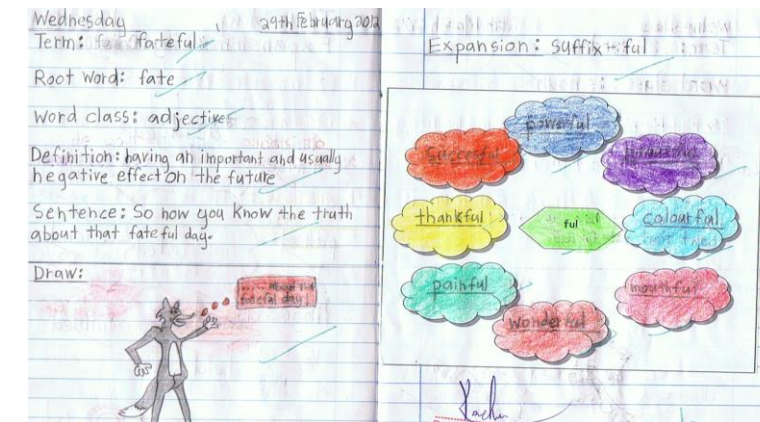 Wednesday 29th February 2012
Term: fateful
Root word: fate
Word class: adjective
Definition: having an important and usually
negative effect on the future
Sentence: So now you know the truth
about that fateful day.
Draw:
about the
day
Expansion: Suffix - ful
powerful
thankful
ful
colourful
painful
mouthful
wonderful